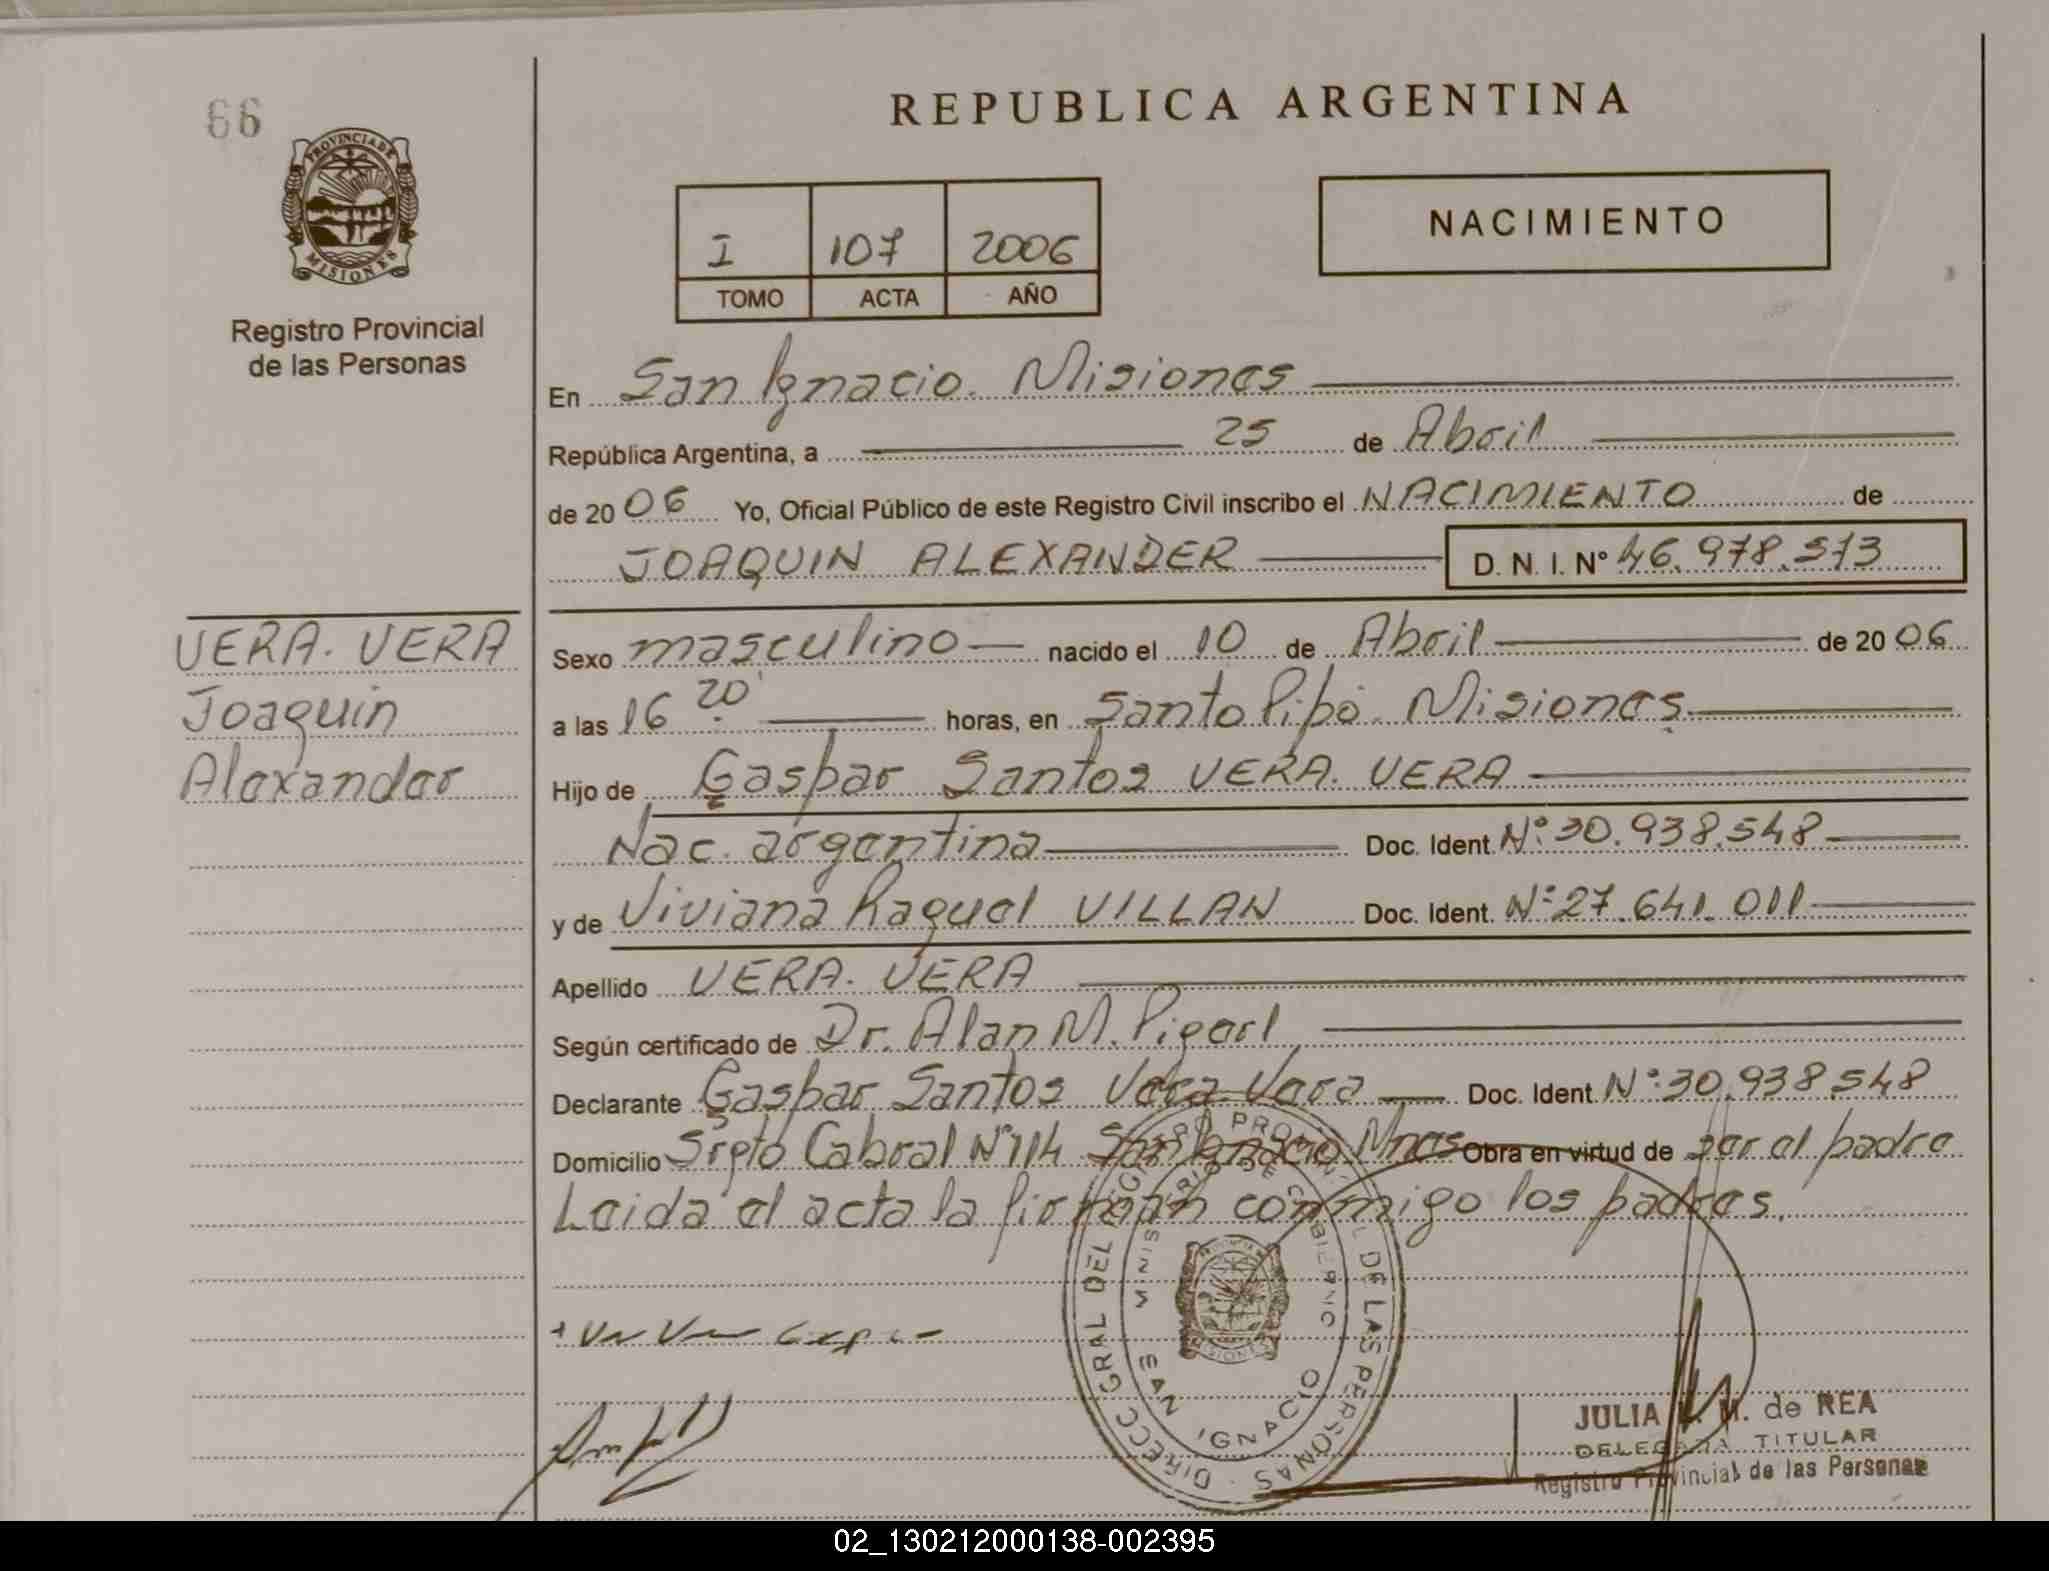 66
PROVINCIA DE
MISIONES
Registro Provincial
de las Personas
REPUBLICA ARGENTINA
I 107 2006
TOMO ACTA AÑO
NACIMIENTO
En San Ignacio. Misiones
República Argentina, a 25 de Abril
de 2006 Yo, Oficial Público de este Registro Civil inscribo el NACIMIENTO de
JOAQUIN ALEXANDER D. N. I. Nº 46.978.573
VERA. VERA
Joaquin
Alexander
Sexo masculino nacido el 10 de Abril de 2006
a las 16 20' horas, en Santo Pipó. Misiones
Hijo de Gaspar Santos VERA. VERA
Nac. argentina Doc. Ident. Nº: 30.938.548
y de Viviana Raquel VILLAN Doc. Ident. Nº: 27.641.011
Apellido VERA. VERA
Según certificado de Dr. Alan M.
Declarante Gaspar Santos Vera Vera Doc. Ident. Nº: 30.938.548
Domicilio Srgto Cabral Nº 114 San Ignacio Mnes Obra en virtud de ser el padre
Leida el acta la firman conmigo los padres.
DIRECC GRAL DEL REGISTRO PROVINCIAL DE LAS PERSONAS
MINISTERIO DE GOBIERNO
SAN IGNACIO
MISIONES
JULIA M. de REA
DELEGADA TITULAR
Registro Provincial de las Personas
02_130212000138-002395